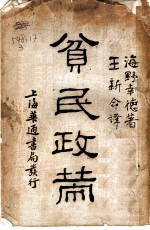 海野幸德著
王新命譯
貧民政策
上海華通書局發行